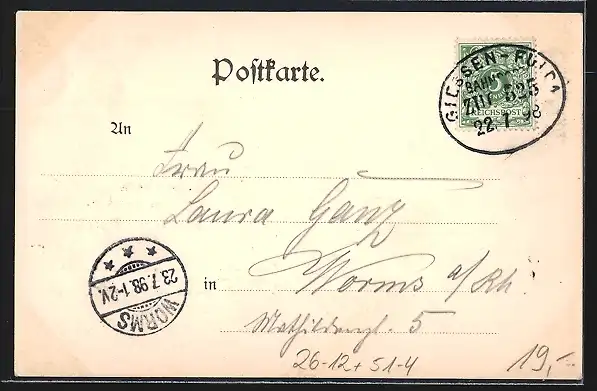 Postkarte.
GIESSEN-FULDA
BAHNPOST
ZUG 525
22 7 98
REICHSPOST
An
Frau
Laura Ganz
in Worms a/Rh.
Mathildenpl. 5
WORMS
23.7.98.1-2V.
26-12+51-4
19,-